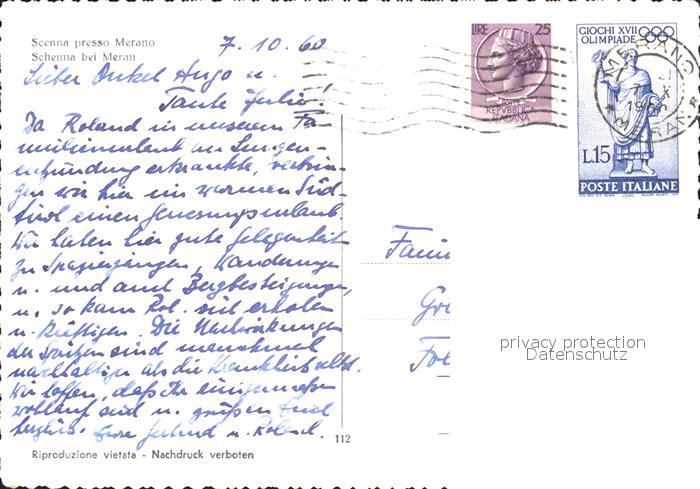 Scenna presso Merano
Schenna bei Meran
7.10.60
Lieber Onkel Hugo u.
Tante Julie!
Da Roland in unserem Fa-
milienurlaub an Lungen-
entzündung erkrankte, verbrin-
gen wir hier im warmen Süd-
tirol einen Genesungsurlaub.
Wir haben hier gute Gelegenheit
zu Spaziergängen, Wanderungen
u. und auch Bergbesteigungen,
u. so kann Rol. sich erholen
u. kräftigen. Die Nachwirkungen
der Spritzen sind manchmal
nachhaltiger als die Krankheit selbst.
Wir hoffen, daß ihr einigermaßen
wohlauf seid u. grüßen Euch
herzlich. Eure Gertrud u. Roland.
112
Riproduzione vietata - Nachdruck verboten
LIRE 25
REPVBBLICA
ITALIANA
GIOCHI XVII
OLIMPIADE
L.15
POSTE ITALIANE
MERANO
MERAN
Fam
Gr
privacy protection
Datenschutz